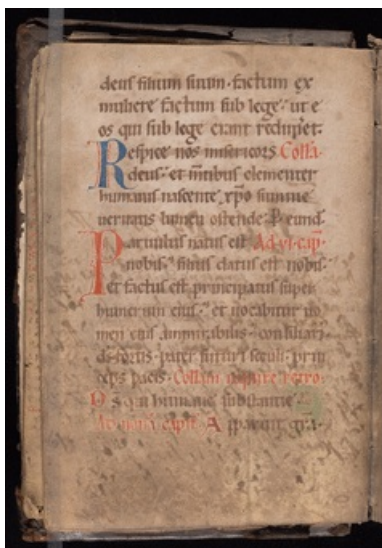 deus filium suum· factum ex
muliere factum sub lege· ut e
os qui sub lege erant redimeret·
Respice nos misericors Colla·
deus· et mentibus clementer
humanis nascente xpo summe
ueritatis lumen ostende· P eund
Paruulus natus est Ad vi· cap·
nobis· filius datus est nobis·
et factus est principatus super
humerum eius· et uocabitur no
men eius ammirabilis· consiliari
ds fortis· pater futuri seculi· prin
ceps pacis· Collam require retro·
Ds qui humane substantie
Ad nonā capit· Apparuit gra